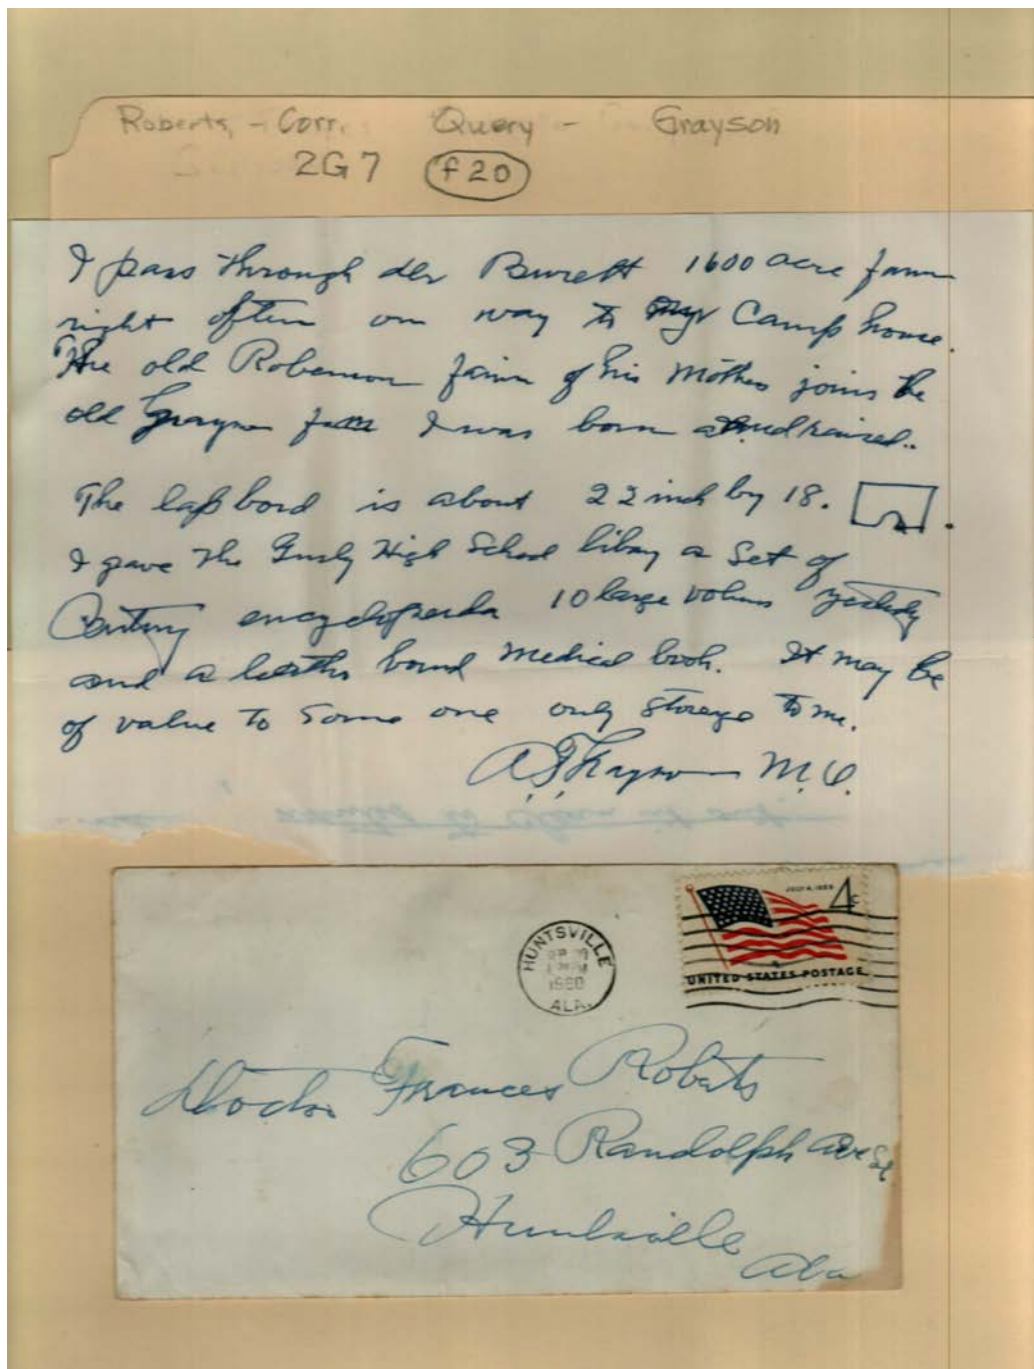 Roberts, - Corr. Query - Grayson
2G7 f20
I pass through der Burett 1600 acre farm
right often on way to my Camp house.
The old Roberson farm of his Mother joins the
old Grayson farm I was born and raised..
The lap bord is about 22 inch by 18.
I gave the Gurly High School libay a Set of
Century encyclopedia 10 large volums yestedy
and a leather bound medical book. It may be
of value to some one only storage to me.
M.D.
HUNTSVILLE
1 PM
1960
ALA.
JULY 4, 1959 4c
UNITED STATES POSTAGE
Doctor Frances Roberts
603 Randolph ave SE
Huntsville
Ala